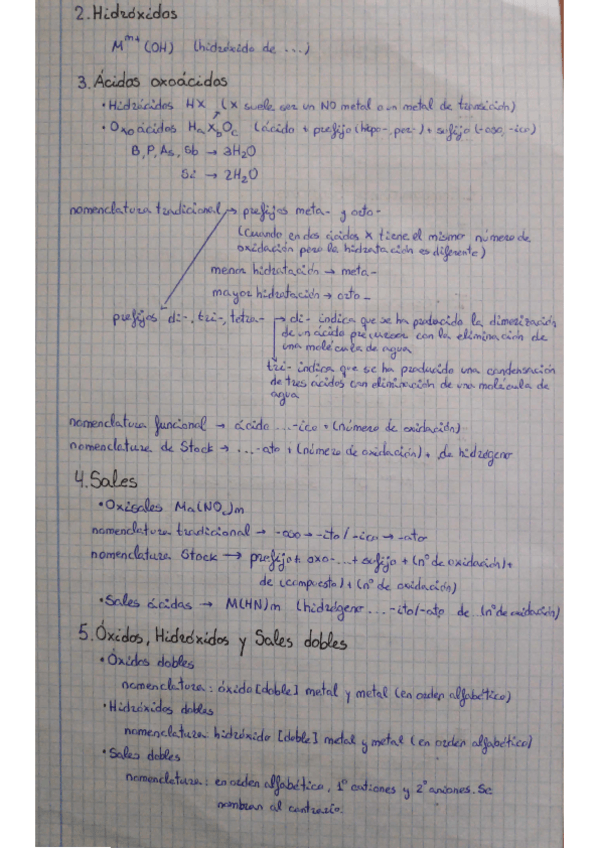 2. Hidróxidos
M^m+ (OH) (hidróxido de ...)
3. Ácidos oxoácidos
• Hidrácidos HX (X suele ser un NO metal o un metal de transición)
• Oxoácidos HaXbOc (ácido + prefijo (hipo-, per-) + sufijo (-oso, -ico)
B, P, As, Sb → 3H2O
Si → 2H2O
nomenclatura tradicional → prefijos meta- y orto-
(Cuando en dos ácidos X tiene el mismo número de
oxidación pero la hidratación es diferente)
menor hidratación → meta-
mayor hidratación → orto-
prefijos di-, tri-, tetra- → di- indica que se ha producido la dimerización
de un ácido precursor con la eliminación de
una molécula de agua
tri- indica que se ha producido una condensación
de tres ácidos con eliminación de una molécula de
agua
nomenclatura funcional → ácido ...-ico + (número de oxidación)
nomenclatura de Stock → ...-ato + (número de oxidación) + de hidrógeno
4. Sales
• Oxisales
nomenclatura tradicional → -oso → -ito / -ico → -ato
nomenclatura Stock → prefijo + oxo-...+ sufijo + (nº de oxidación) +
de (compuesto) + (nº de oxidación)
• Sales ácidas → M(HN)m (hidrógeno ...-ito/-ato de (nº de oxidación)
5. Óxidos, Hidróxidos y Sales dobles
• Óxidos dobles
nomenclatura: óxido [doble] metal y metal (en orden alfabético)
• Hidróxidos dobles
nomenclatura hidróxido [doble] metal y metal (en orden alfabético)
• Sales dobles
nomenclatura: en orden alfabético, 1º cationes y 2º aniones. Se
nombran al contrario.